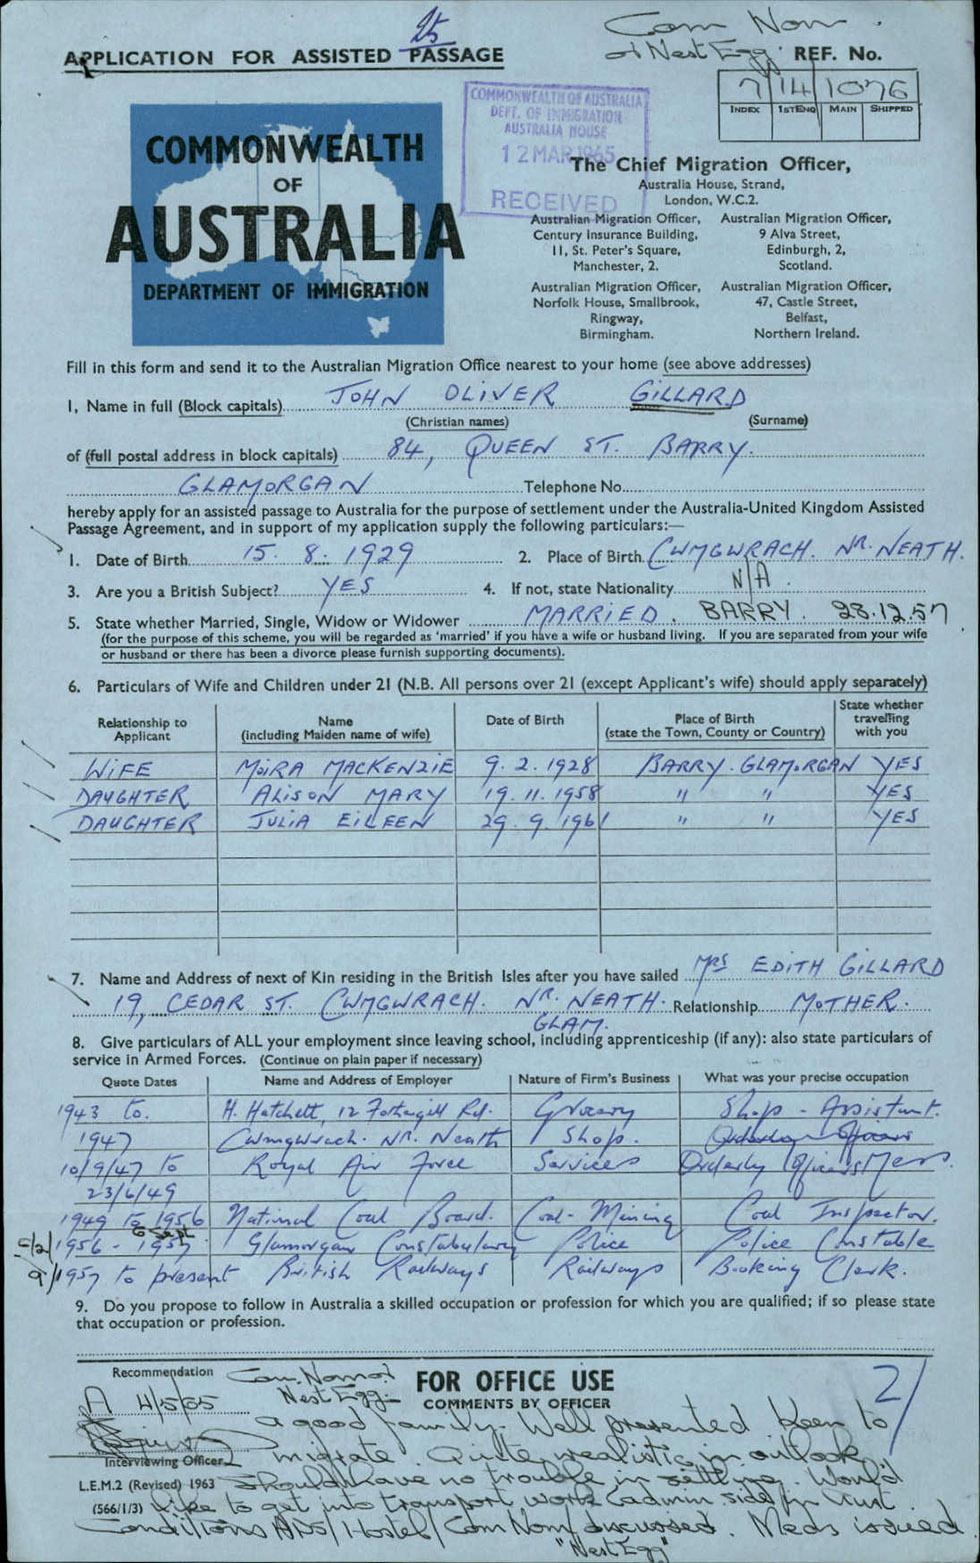 25
Com Nom.
APPLICATION FOR ASSISTED PASSAGE
at Nest Egg. REF. No.
7 14 1076
INDEX 1ST ENQ MAIN SHIPPED
COMMONWEALTH OF AUSTRALIA
DEPT. OF IMMIGRATION
AUSTRALIA HOUSE
12 MAR 1965
RECEIVED
COMMONWEALTH
OF
AUSTRALIA
DEPARTMENT OF IMMIGRATION
The Chief Migration Officer,
Australia House, Strand,
London, W.C.2.
Australian Migration Officer,
Century Insurance Building,
11, St. Peter's Square,
Manchester, 2.
Australian Migration Officer,
9 Alva Street,
Edinburgh, 2,
Scotland.
Australian Migration Officer,
Norfolk House, Smallbrook,
Ringway,
Birmingham.
Australian Migration Officer,
47, Castle Street,
Belfast,
Northern Ireland.
Fill in this form and send it to the Australian Migration Office nearest to your home (see above addresses)
1, Name in full (Block capitals) JOHN OLIVER GILLARD
(Christian names) (Surname)
of (full postal address in block capitals) 84, QUEEN ST. BARRY.
GLAMORGAN Telephone No.
hereby apply for an assisted passage to Australia for the purpose of settlement under the Australia-United Kingdom Assisted
Passage Agreement, and in support of my application supply the following particulars:—
1. Date of Birth 15. 8. 1929 2. Place of Birth CWMGWRACH. NR. NEATH.
3. Are you a British Subject? YES 4. If not, state Nationality N/A.
5. State whether Married, Single, Widow or Widower MARRIED. BARRY. 28.12.57
(for the purpose of this scheme, you will be regarded as 'married' if you have a wife or husband living. If you are separated from your wife
or husband or there has been a divorce please furnish supporting documents).
6. Particulars of Wife and Children under 21 (N.B. All persons over 21 (except Applicant's wife) should apply separately)
Relationship to Applicant Name (including Maiden name of wife) Date of Birth Place of Birth (state the Town, County or Country) State whether travelling with you
WIFE MOIRA MACKENZIE 9. 2. 1928 BARRY. GLAMORGAN YES
DAUGHTER ALISON MARY 19. 11. 1958 " " YES
DAUGHTER JULIA EILEEN 29. 9. 1961 " " YES
7. Name and Address of next of Kin residing in the British Isles after you have sailed MRS EDITH GILLARD
19, CEDAR ST. CWMGWRACH. NR. NEATH. Relationship MOTHER.
GLAM.
8. Give particulars of ALL your employment since leaving school, including apprenticeship (if any): also state particulars of
service in Armed Forces. (Continue on plain paper if necessary)
Quote Dates Name and Address of Employer Nature of Firm's Business What was your precise occupation
1943 to. H. Hatchett, 12 Fothergill Rd. Grocery Shop - Assistant.
1947 Cwmgwrach. NR. Neath Shop.
10/9/47 to Royal Air Force Services Orderly Officers Mess.
23/6/49
1949 to 1956 National Coal Board. Coal-Mining Coal Inspector.
6 Sept
1956 - 1957 Glamorgan Constabulary Police Police Constable
9/1957 to present British Railways Railways Booking Clerk.
9. Do you propose to follow in Australia a skilled occupation or profession for which you are qualified; if so please state
that occupation or profession.
Recommendation
A 4/5/65
Interviewing Officer
L.E.M.2 (Revised) 1963
(566/1/3)
Com Nom at
Nest Egg.
FOR OFFICE USE
COMMENTS BY OFFICER
2/
a good family. Well presented keen to
migrate. Quite realistic in outlook
should have no trouble in settling. Would
like to get into transport work (admin side) in Aust.
Conditions ADS/Hostel/Com Nom/ discussed. Meds issued.
"Nest Egg"